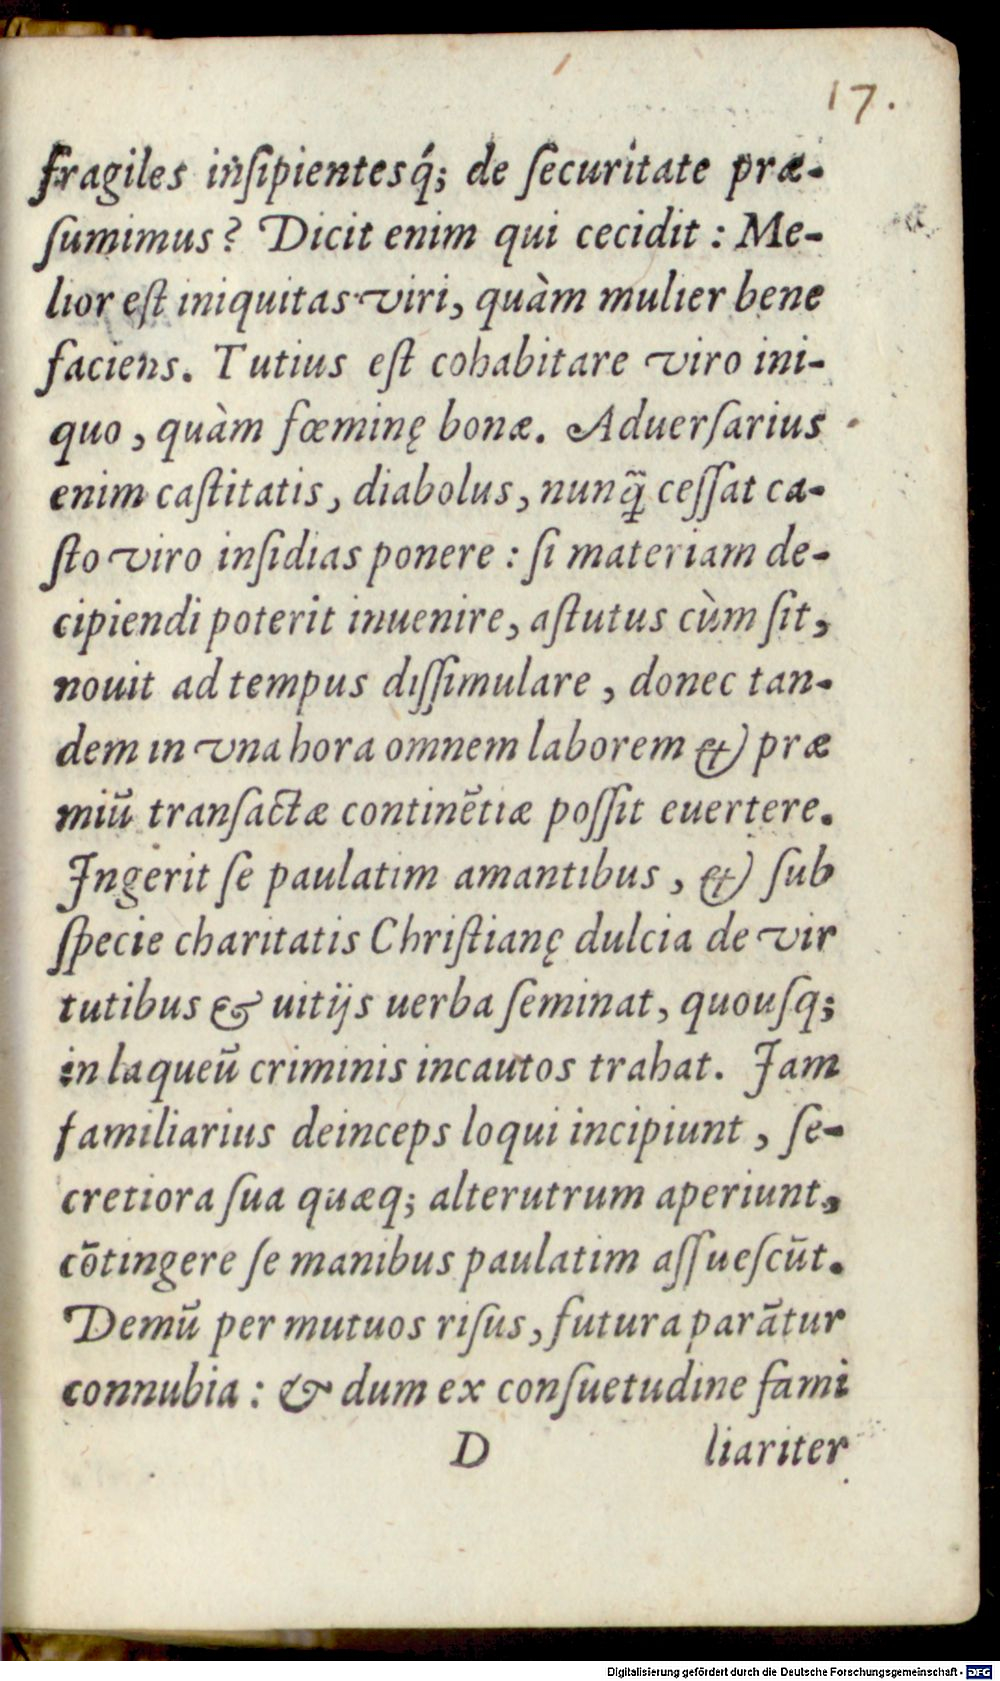 17.
fragiles insipientesq́; de ſecuritate præ-
ſumimus? Dicit enim qui cecidit: Me-
lior eſt iniquitas viri, quàm mulier bene
faciens. Tutius eſt cohabitare viro ini-
quo, quàm fœminę bonæ. Aduerſarius
enim caſtitatis, diabolus, nunq̃ ceſſat ca-
ſto viro inſidias ponere: ſi materiam de-
cipiendi poterit inuenire, aſtutus cùm ſit,
nouit ad tempus diſſimulare, donec tan-
dem in vna hora omnem laborem & præ
miũ tranſactæ continẽtiæ poſſit euertere.
Ingerit ſe paulatim amantibus, & ſub
ſpecie charitatis Chriſtianę dulcia de vir
tutibus & uitijs uerba ſeminat, quouſq;
in laqueũ criminis incautos trahat. Jam
familiarius deinceps loqui incipiunt, ſe-
cretiora ſua quæq; alterutrum aperiunt,
cõtingere ſe manibus paulatim aſſueſcũt.
Demũ per mutuos riſus, futura parãtur
connubia: & dum ex conſuetudine fami
D liariter
Digitalisierung gefördert durch die Deutsche Forschungsgemeinschaft - DFG